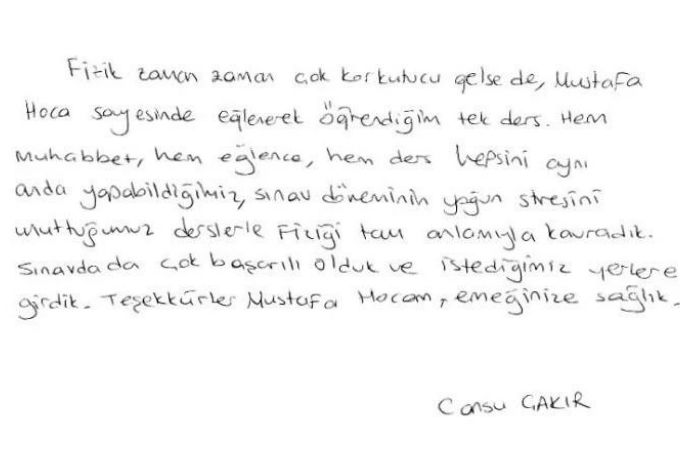 Fizik zaman zaman çok korkutucu gelse de, Mustafa
Hoca sayesinde eğlenerek öğrendiğim tek ders. Hem
muhabbet, hem eğlence, hem ders hepsini aynı
anda yapabildiğimiz, sınav döneminin yoğun stresini
unuttuğumuz derslerle Fiziği tam anlamıyla kavradık.
Sınavda da çok başarılı olduk ve istediğimiz yerlere
girdik. Teşekkürler Mustafa Hocam, emeğinize sağlık.
Cansu ÇAKIR